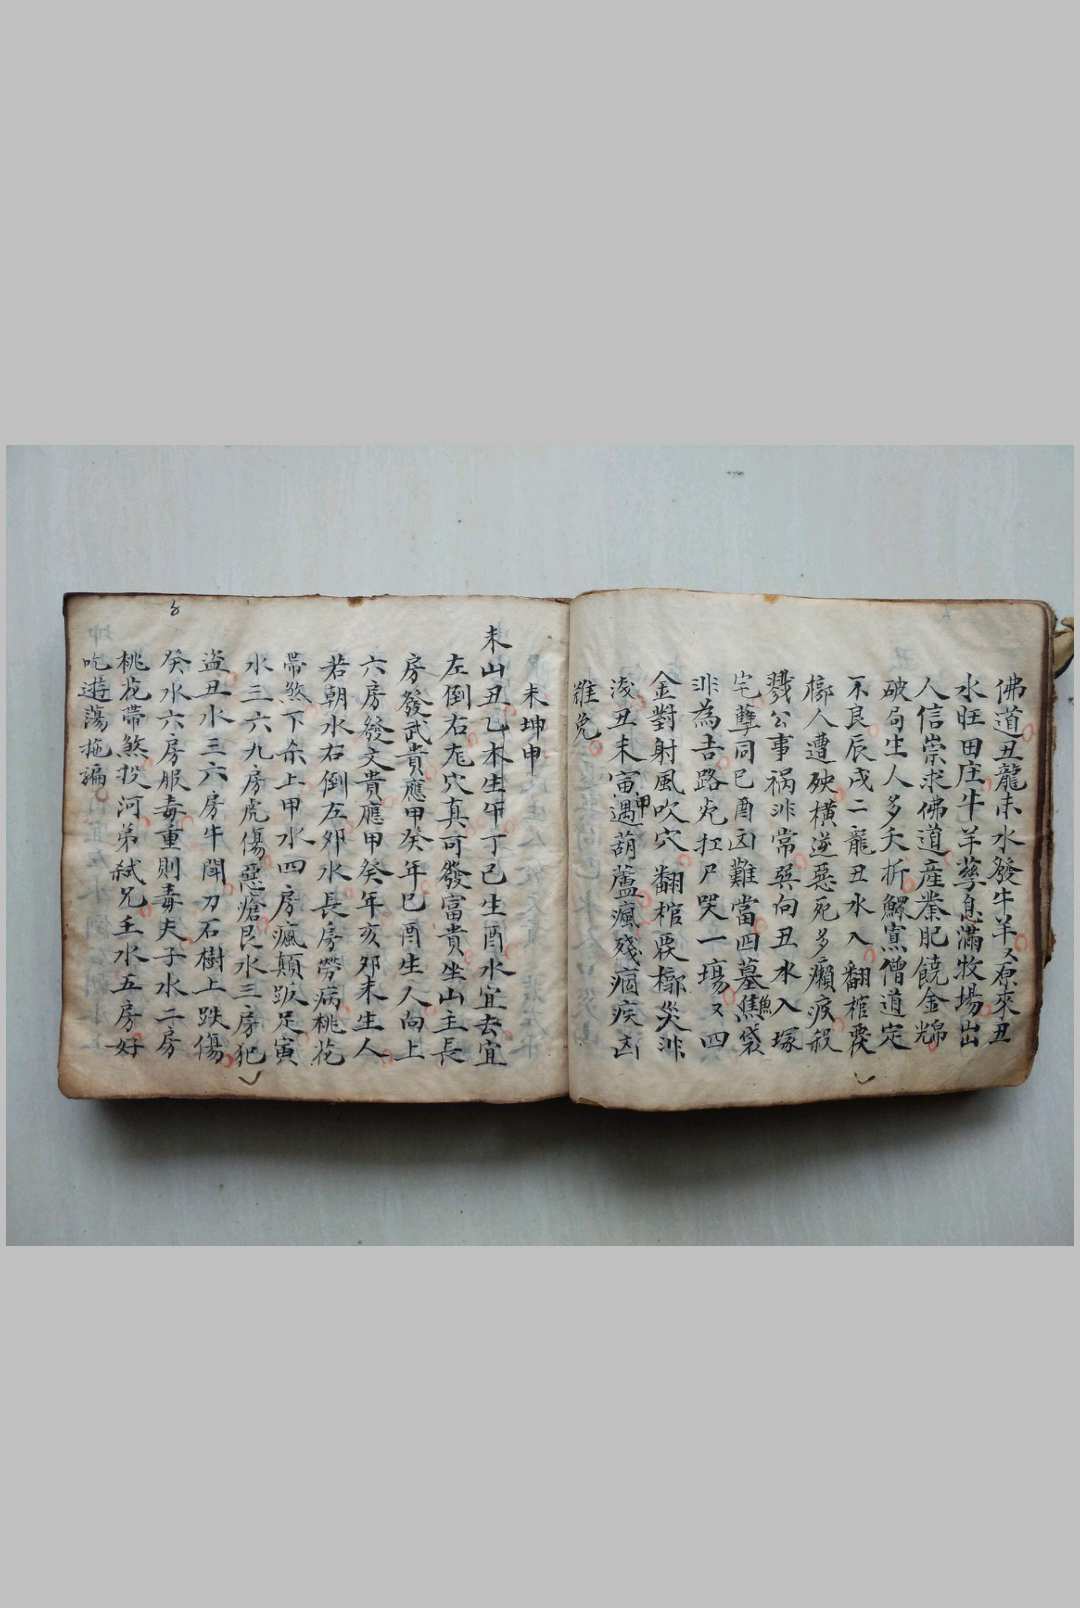 佛道丑龍未水發牛羊又原來丑
水旺田庄牛羊孳息滿牧場出
人信崇求佛道産業肥饒金
破局生人多夭折鰥寡僧道定
不良辰戌二龍丑水入翻棺覆
槨人遭殃橫逆惡死多癩疾殺
戮公事祸非常巽向丑水入塚
宅孽同巳酉凶難當四墓為袋
非為吉路死扛尸哭一塲又四
金對射風吹穴翻棺覆槨災非
凌丑未寅申遇葫蘆瘋殘痼疾凶
難免
未坤申
未山丑乙木生午丁己生酉水宜去宜
左倒右尨穴真可發富貴坐山主長
房發武貴應甲癸年巳酉生人向上
六房發文貴應甲癸年亥卯未生人
若朝水右倒左卯水長房勞病桃花
帶煞下朵上甲水四房瘋顛跛足寅
水三六九房虎傷惡瘡艮水三房犯
盜丑水三六房牛閗刀石樹上跌傷
癸水六房服毒重則毒夫子水二房
桃花帶煞投河弟弒兄壬水五房好
吃遊蕩拖騙